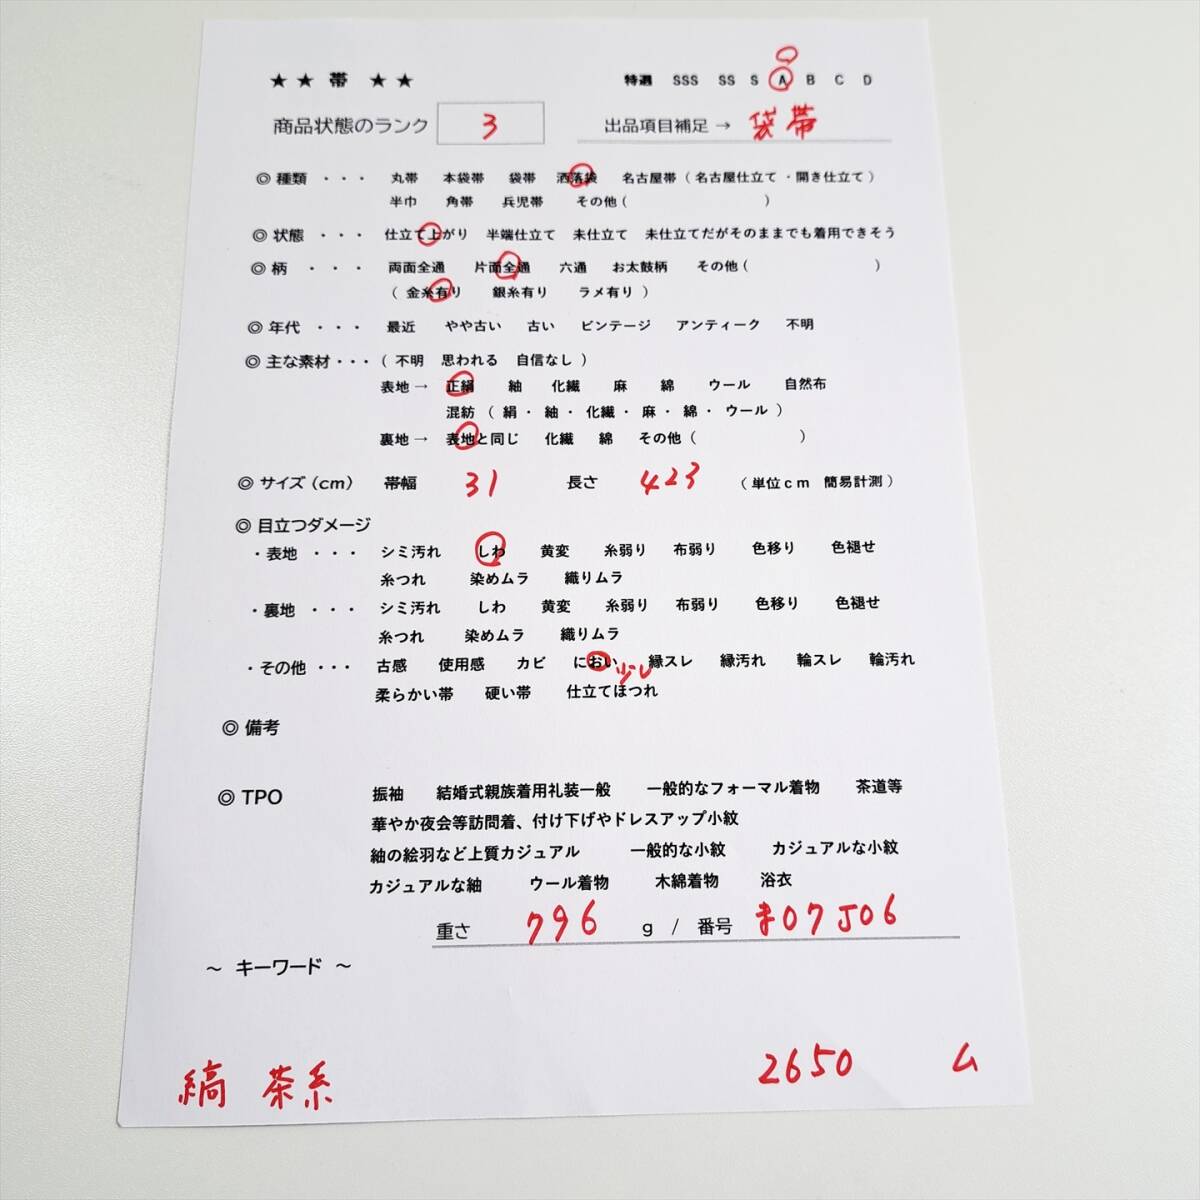 ★★ 帯 ★★ 特選 SSS SS S A B C D
商品状態のランク 3 出品項目補足 → 袋帯
◎ 種類 ・・・ 丸帯 本袋帯 袋帯 洒落袋 名古屋帯 ( 名古屋仕立て ・開き仕立て )
半巾 角帯 兵児帯 その他 ( )
◎ 状態 ・・・ 仕立て上がり 半端仕立て 未仕立て 未仕立てだがそのままでも着用できそう
◎ 柄 ・・・ 両面全通 片面全通 六通 お太鼓柄 その他 ( )
( 金糸有り 銀糸有り ラメ有り )
◎ 年代 ・・・ 最近 やや古い 古い ビンテージ アンティーク 不明
◎ 主な素材・・・ ( 不明 思われる 自信なし )
表地 → 正絹 紬 化繊 麻 綿 ウール 自然布
混紡 ( 絹・ 紬・ 化繊・ 麻・ 綿・ ウール )
裏地 → 表地と同じ 化繊 綿 その他 ( )
◎ サイズ (cm) 帯幅 31 長さ 423 (単位cm 簡易計測)
◎ 目立つダメージ
・表地 ・・・ シミ汚れ しわ 黄変 糸弱り 布弱り 色移り 色褪せ
糸つれ 染めムラ 織りムラ
・裏地 ・・・ シミ汚れ しわ 黄変 糸弱り 布弱り 色移り 色褪せ
糸つれ 染めムラ 織りムラ
・その他 ・・・ 古感 使用感 カビ におい 少し 縁スレ 縁汚れ 輪スレ 輪汚れ
柔らかい帯 硬い帯 仕立てほつれ
◎ 備考
◎ TPO 振袖 結婚式親族着用礼装一般 一般的なフォーマル着物 茶道等
華やか夜会等訪問着、付け下げやドレスアップ小紋
紬の絵羽など上質カジュアル 一般的な小紋 カジュアルな小紋
カジュアルな紬 ウール着物 木綿着物 浴衣
重さ 796 g / 番号 ま07J06
～ キーワード ～
縞 茶系 2650 ム